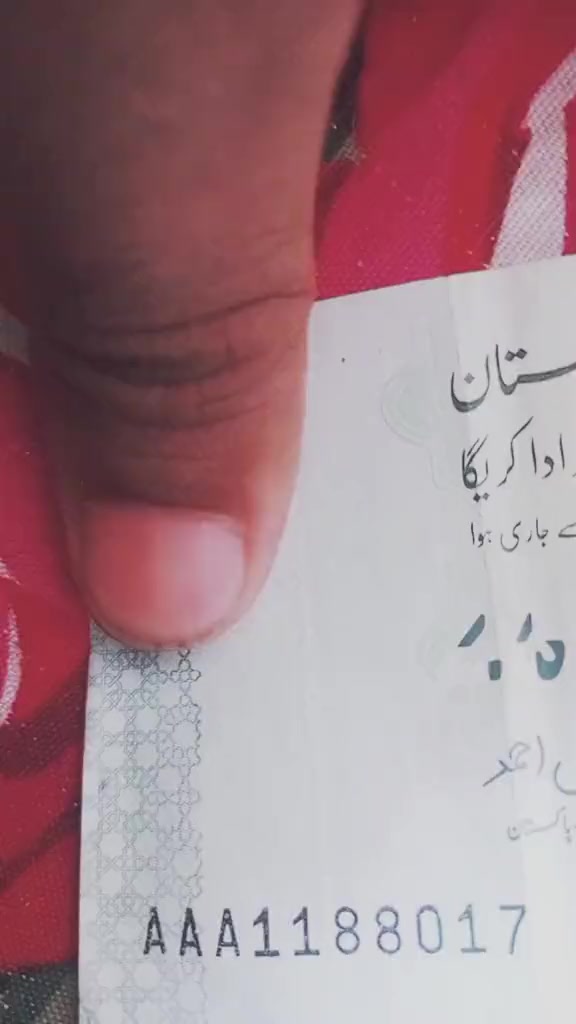 ستان
ادا کریگا
سے جاری ہوا
احمد
پاکستان
AAA1188017